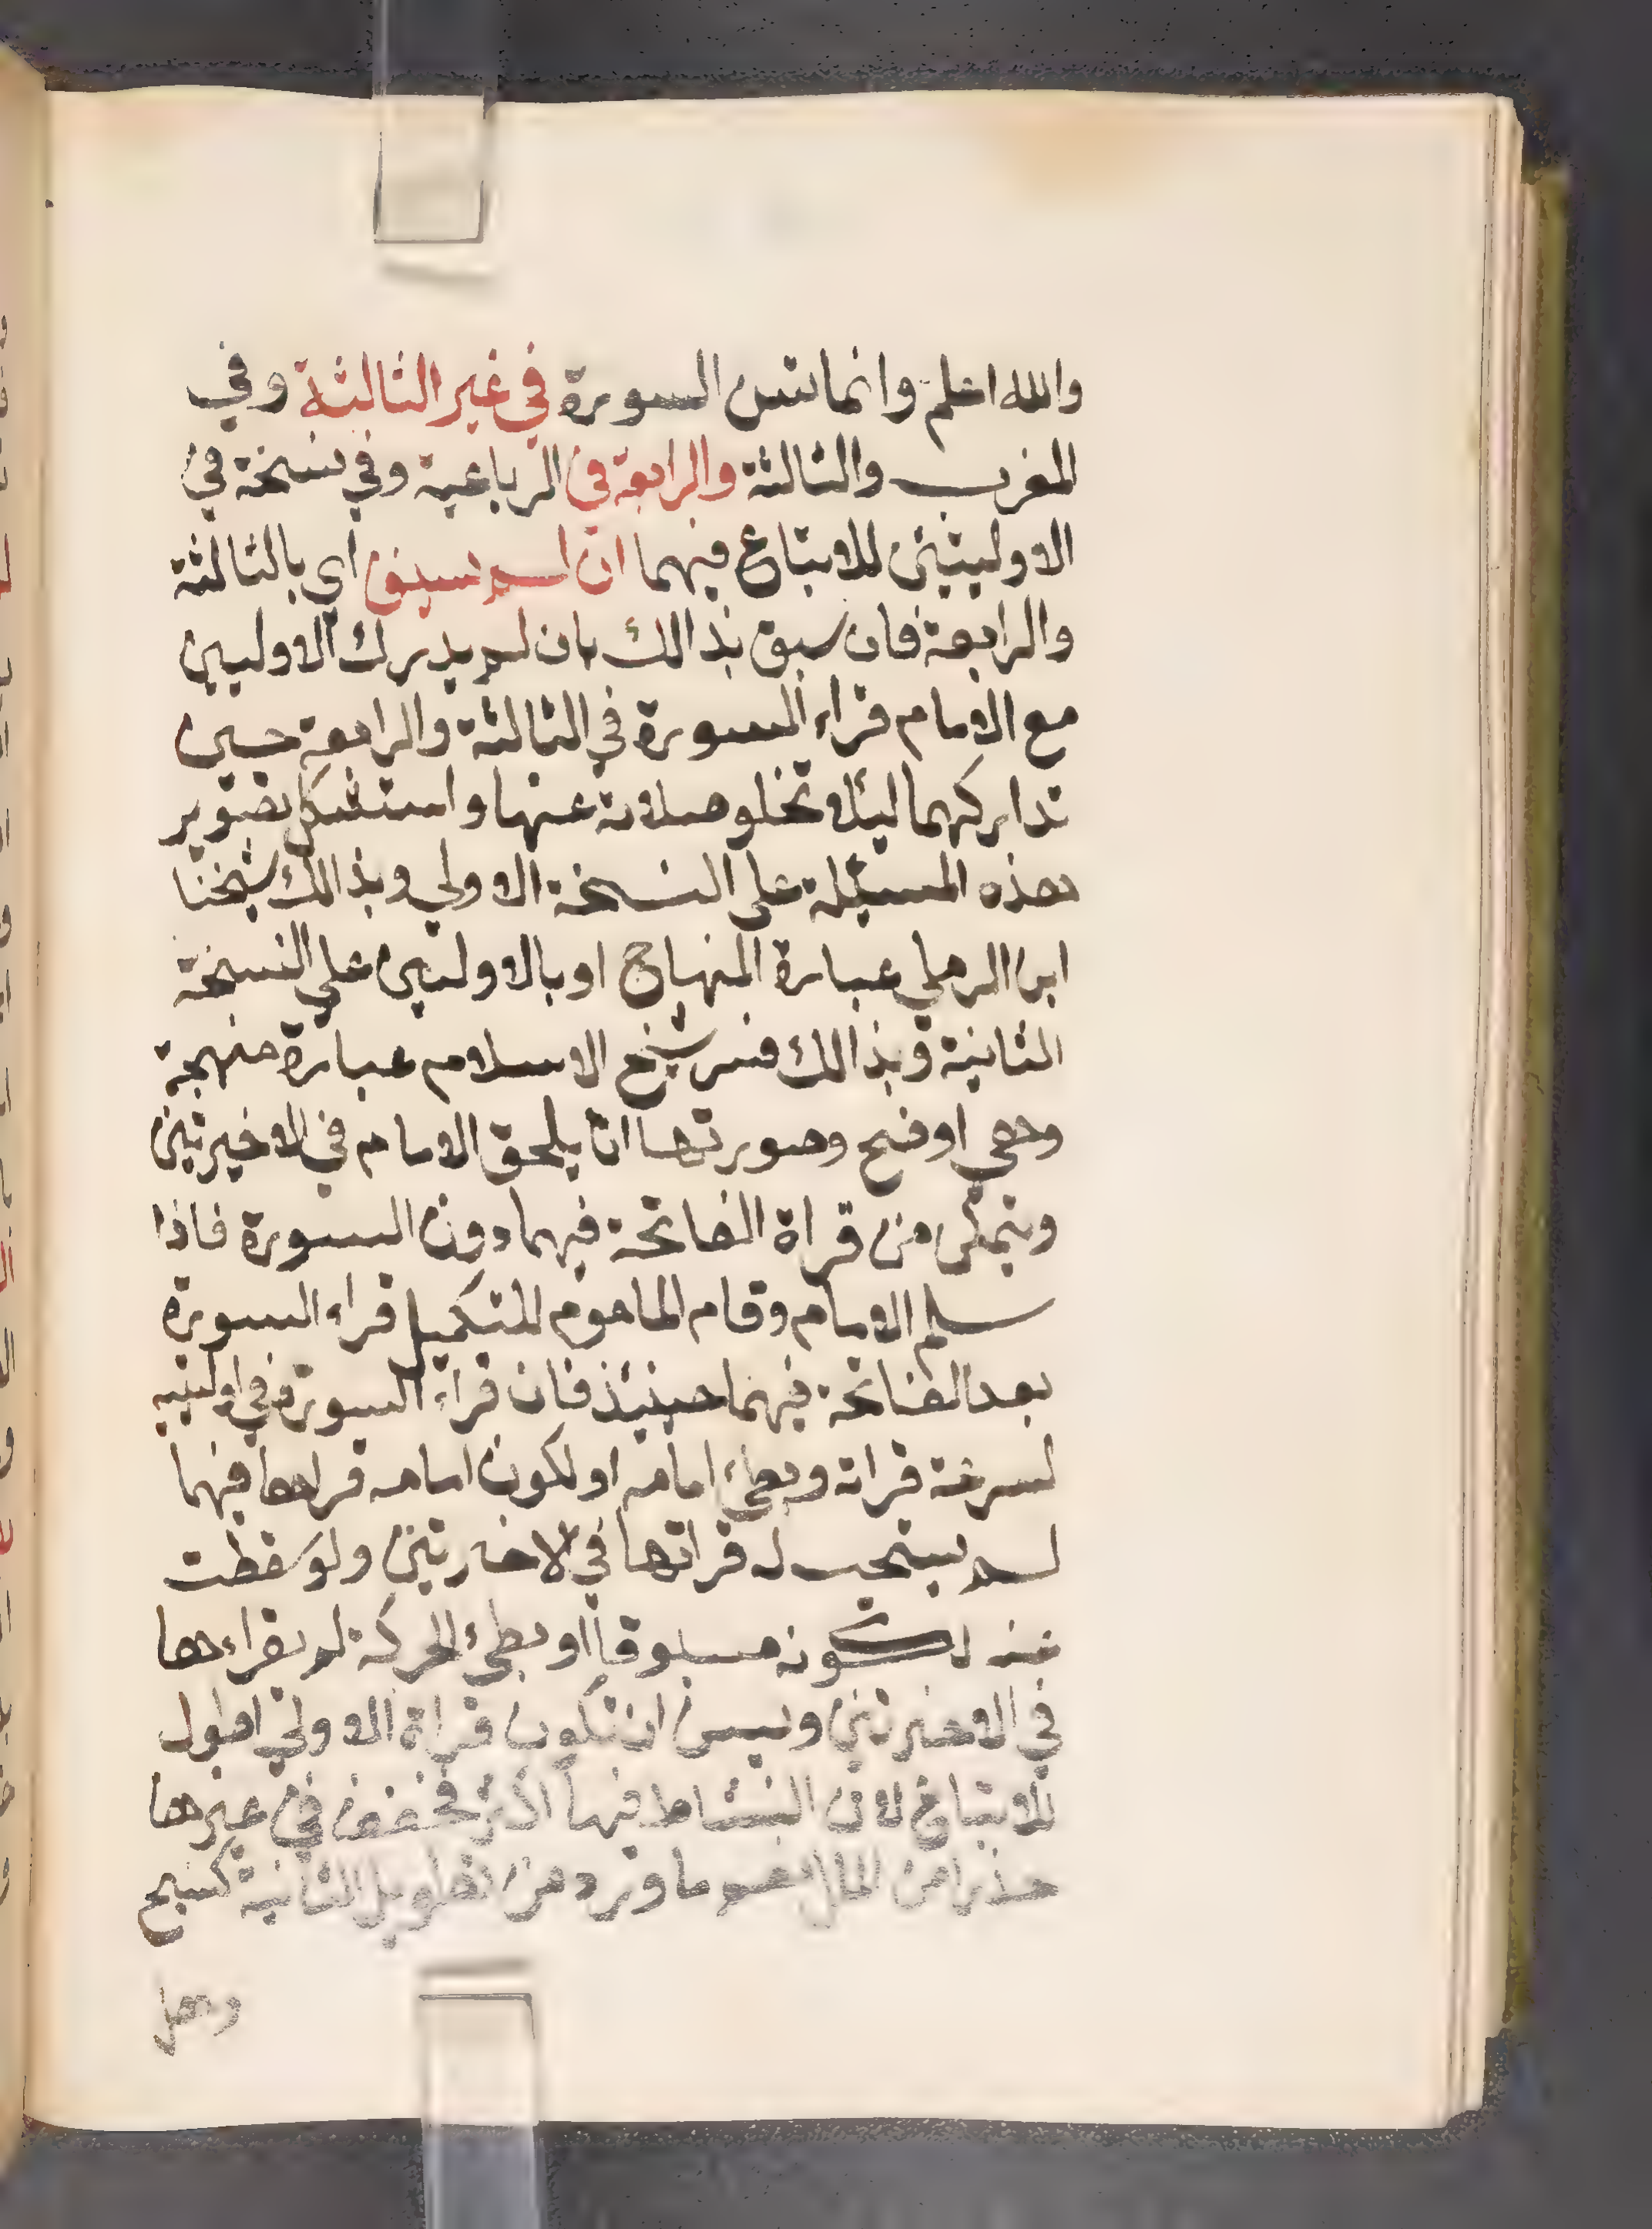 والله اعلم وانما تسن السورة في غير الثالثة وفي
المغرب والثالثة والرابعة في الرباعية وفي نسخة في
الاوليتين للاتباع فيهما ان لم سبق اي بالثالثة
والرابعة فان سبق بذالك بان لم يدرك الاوليين
مع الامام قراء السورة في الثالثة والرابعة حين
تداركهما ليئلا تخلو صلاته عنها واستشكل تصوير
هذه المسئيلة على النسخة الاولي وبذالك شيخنا
ابن الرملي عبارة المنهاج او بالاولتين علي النسخة
الثانية وبذالك فسر شيخ الاسلام عبارة منهجة
وهي اوضح وصورتها ان يلحق الامام في الاخيرتين
ويتمكن من قراة الفاتحة فيهما دون السورة فاذا
سلم الامام وقام الماموم للتكميل قراء السورة
بعد الفاتحة فيهما حينئذ فان قراء السورة في اولتيه
لسرعة قراته وبطئ امامه او لكون امامه قراها فيهما
لم يستحب له قراتها في الاخرتين ولو سقطت
عنه لكونه مسبوقا او بطئ الحركة لم يقراءها
في الاخيرتين ويسن ان تكون قراة الاولي اطول
للاتباع لان النشاط فيها اكثر فخفف في غيرها
حذرا من الملل نعم ما ورد من تطويل الثانية كسبح
وهل